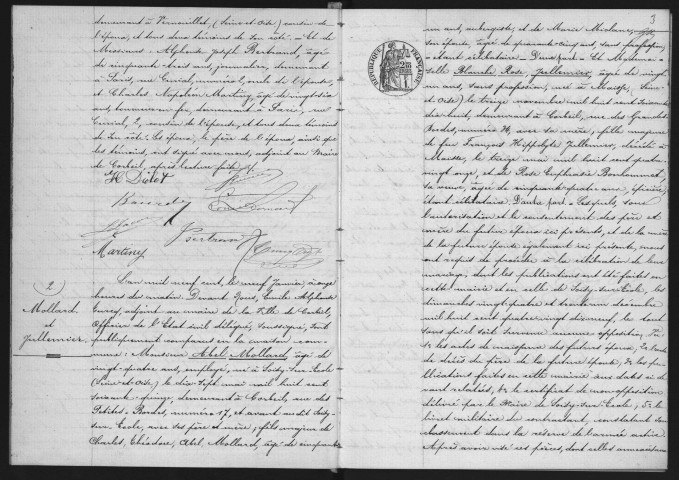 demeurant à Vernouillet, (Seine et Oise) cousin de
l'épouse, et tous deux témoins de son côté. & Et de
Messieurs: Alphonse Joseph Bertrand, âgé
de cinquante-trois ans, journalier, demeurant
à Paris, rue Curial, numéro 2, oncle de l'épouse,
et Charles Napoléon Martiny, âgé de
ans, demeurant à Paris, rue
Curial, 2, cousin de l'épouse, et tous deux témoins
de son côté. Les époux, le père de l'époux, ainsi que
les témoins, ont signé avec nous, adjoint au Maire
de Corbeil, après lecture faite.
H Diolot
Bertrand
Martiny
2
Mollard
et
Jullemier
L'an mil neuf cent, le neuf Janvier, à onze
heures du matin. Devant Nous, Emile Alphonse
adjoint au maire de la Ville de Corbeil,
Officier de l'Etat civil délégué, soussigné, sont
publiquement comparus en la maison com-
mune: Monsieur Abel Mollard, âgé de
vingt-quatre ans, employé, né à Soisy-sur-Ecole
(Seine et Oise) le dix-sept mai mil huit cent
soixante-quinze, demeurant à Corbeil, rue des
Petites-Bordes, numéro 17, et avant au dit Soisy-
sur-Ecole, avec ses père et mère; fils majeur de
Charles, Théodore, Abel, Mollard, âgé de cinquante
3
RÉPUBLIQUE FRANÇAISE
un ans, aubergiste, et de Marie
son épouse, âgée de quarante-cinq ans, sans profession,
et étant célibataire. D'une part. & Et Mademoi-
selle Blanche Rose Jullemier, âgée de vingt
un ans, sans profession, née à Maisse, (Seine-
et-Oise) le treize novembre mil huit cent soixante
dix-huit, demeurant à Corbeil, rue des Grandes
Bordes, numéro 74, avec sa mère, fille majeure
de feu François Hippolyte Jullemier, décédé à
Maisse, le treize mai mil huit cent quatre
vingt onze, et de Rose Euphrasie
sa veuve, âgée de cinquante-quatre ans, épicière
étant célibataire. D'autre part. & Lesquels, sous
l'autorisation et le consentement des père et
mère du futur époux ici présents, et de la mère
de la future épouse également ici présente, nous
ont requis de procéder à la célébration de leur
mariage, dont les publications ont été faites en
cette mairie et en celle de Soisy-sur-Ecole, les
dimanches vingt-quatre et trente un décembre
mil huit cent quatre-vingt dix-neuf, le tout
sans qu'il soit survenu aucune opposition. Vu
les actes de naissance des futurs époux, l'acte
de décès du père de la future épouse, & les pu-
blications faites en cette mairie aux dates ci-de-
vant relatées, & le certificat de non opposition
délivré par le Maire de Soisy-sur-Ecole; & le
livret militaire du contractant, constatant son
classement dans la réserve de l'armée active.
Après avoir visé ces pièces, dont celles annexées